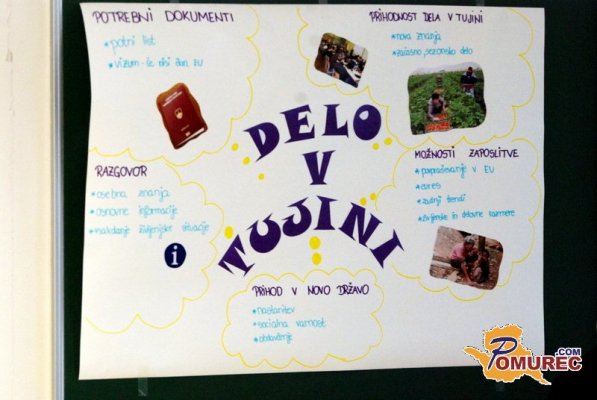 POTREBNI DOKUMENTI
*potni list
*vizum - če nisi član EU
PRIHODNOST DELA V TUJINI
*nova znanja
*začasno, sezonsko delo
DELO
V
TUJINI
RAZGOVOR
*osebna znanja
*osnovne informacije
*nakdanje življenjske situacije
i
MOŽNOSTI ZAPOSLITVE
*povpraševanje v EU
*eures
*zadnji trendi
*življenske in delovne razmere
PRIHOD V NOVO DRŽAVO
*nastanitev
*socialna varnost
*obdavčenje
POMUREC.COM